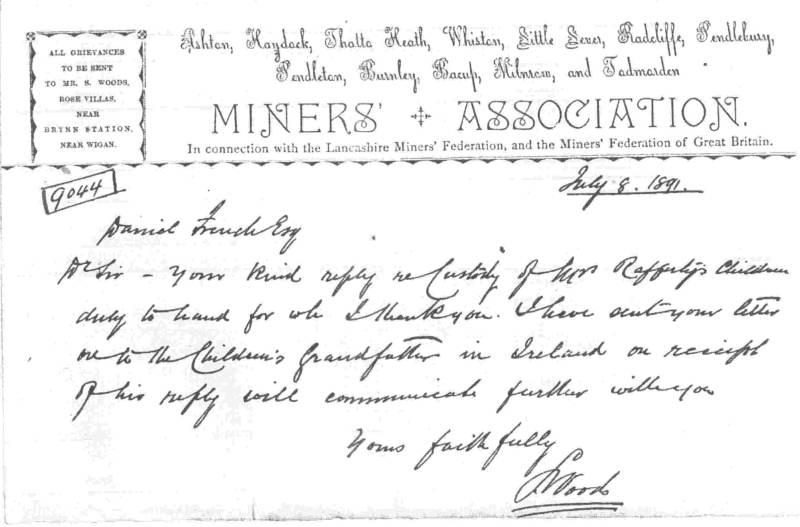 ALL GRIEVANCES
TO BE SENT
TO MR. S. WOODS,
ROSE VILLAS,
NEAR
BRYNN STATION,
NEAR WIGAN.
Ashton, Haydock, Thatto Heath, Whiston, Little Lever, Radcliffe, Pendlebury,
Pendleton, Burnley, Bacup, Milnrow, and Todmorden
MINERS' ASSOCIATION.
In connection with the Lancashire Miners' Federation, and the Miners' Federation of Great Britain.
9044
July 8. 1891.
Daniel French Esq
Dr Sir – Your kind reply re Custody of Mrs Rafferty's Children
duly to hand for wh I thank you. I have sent your letter
on to the Children's Grandfather in Ireland on receipt
of his reply will communicate further with you
Yours faithfully
S Woods